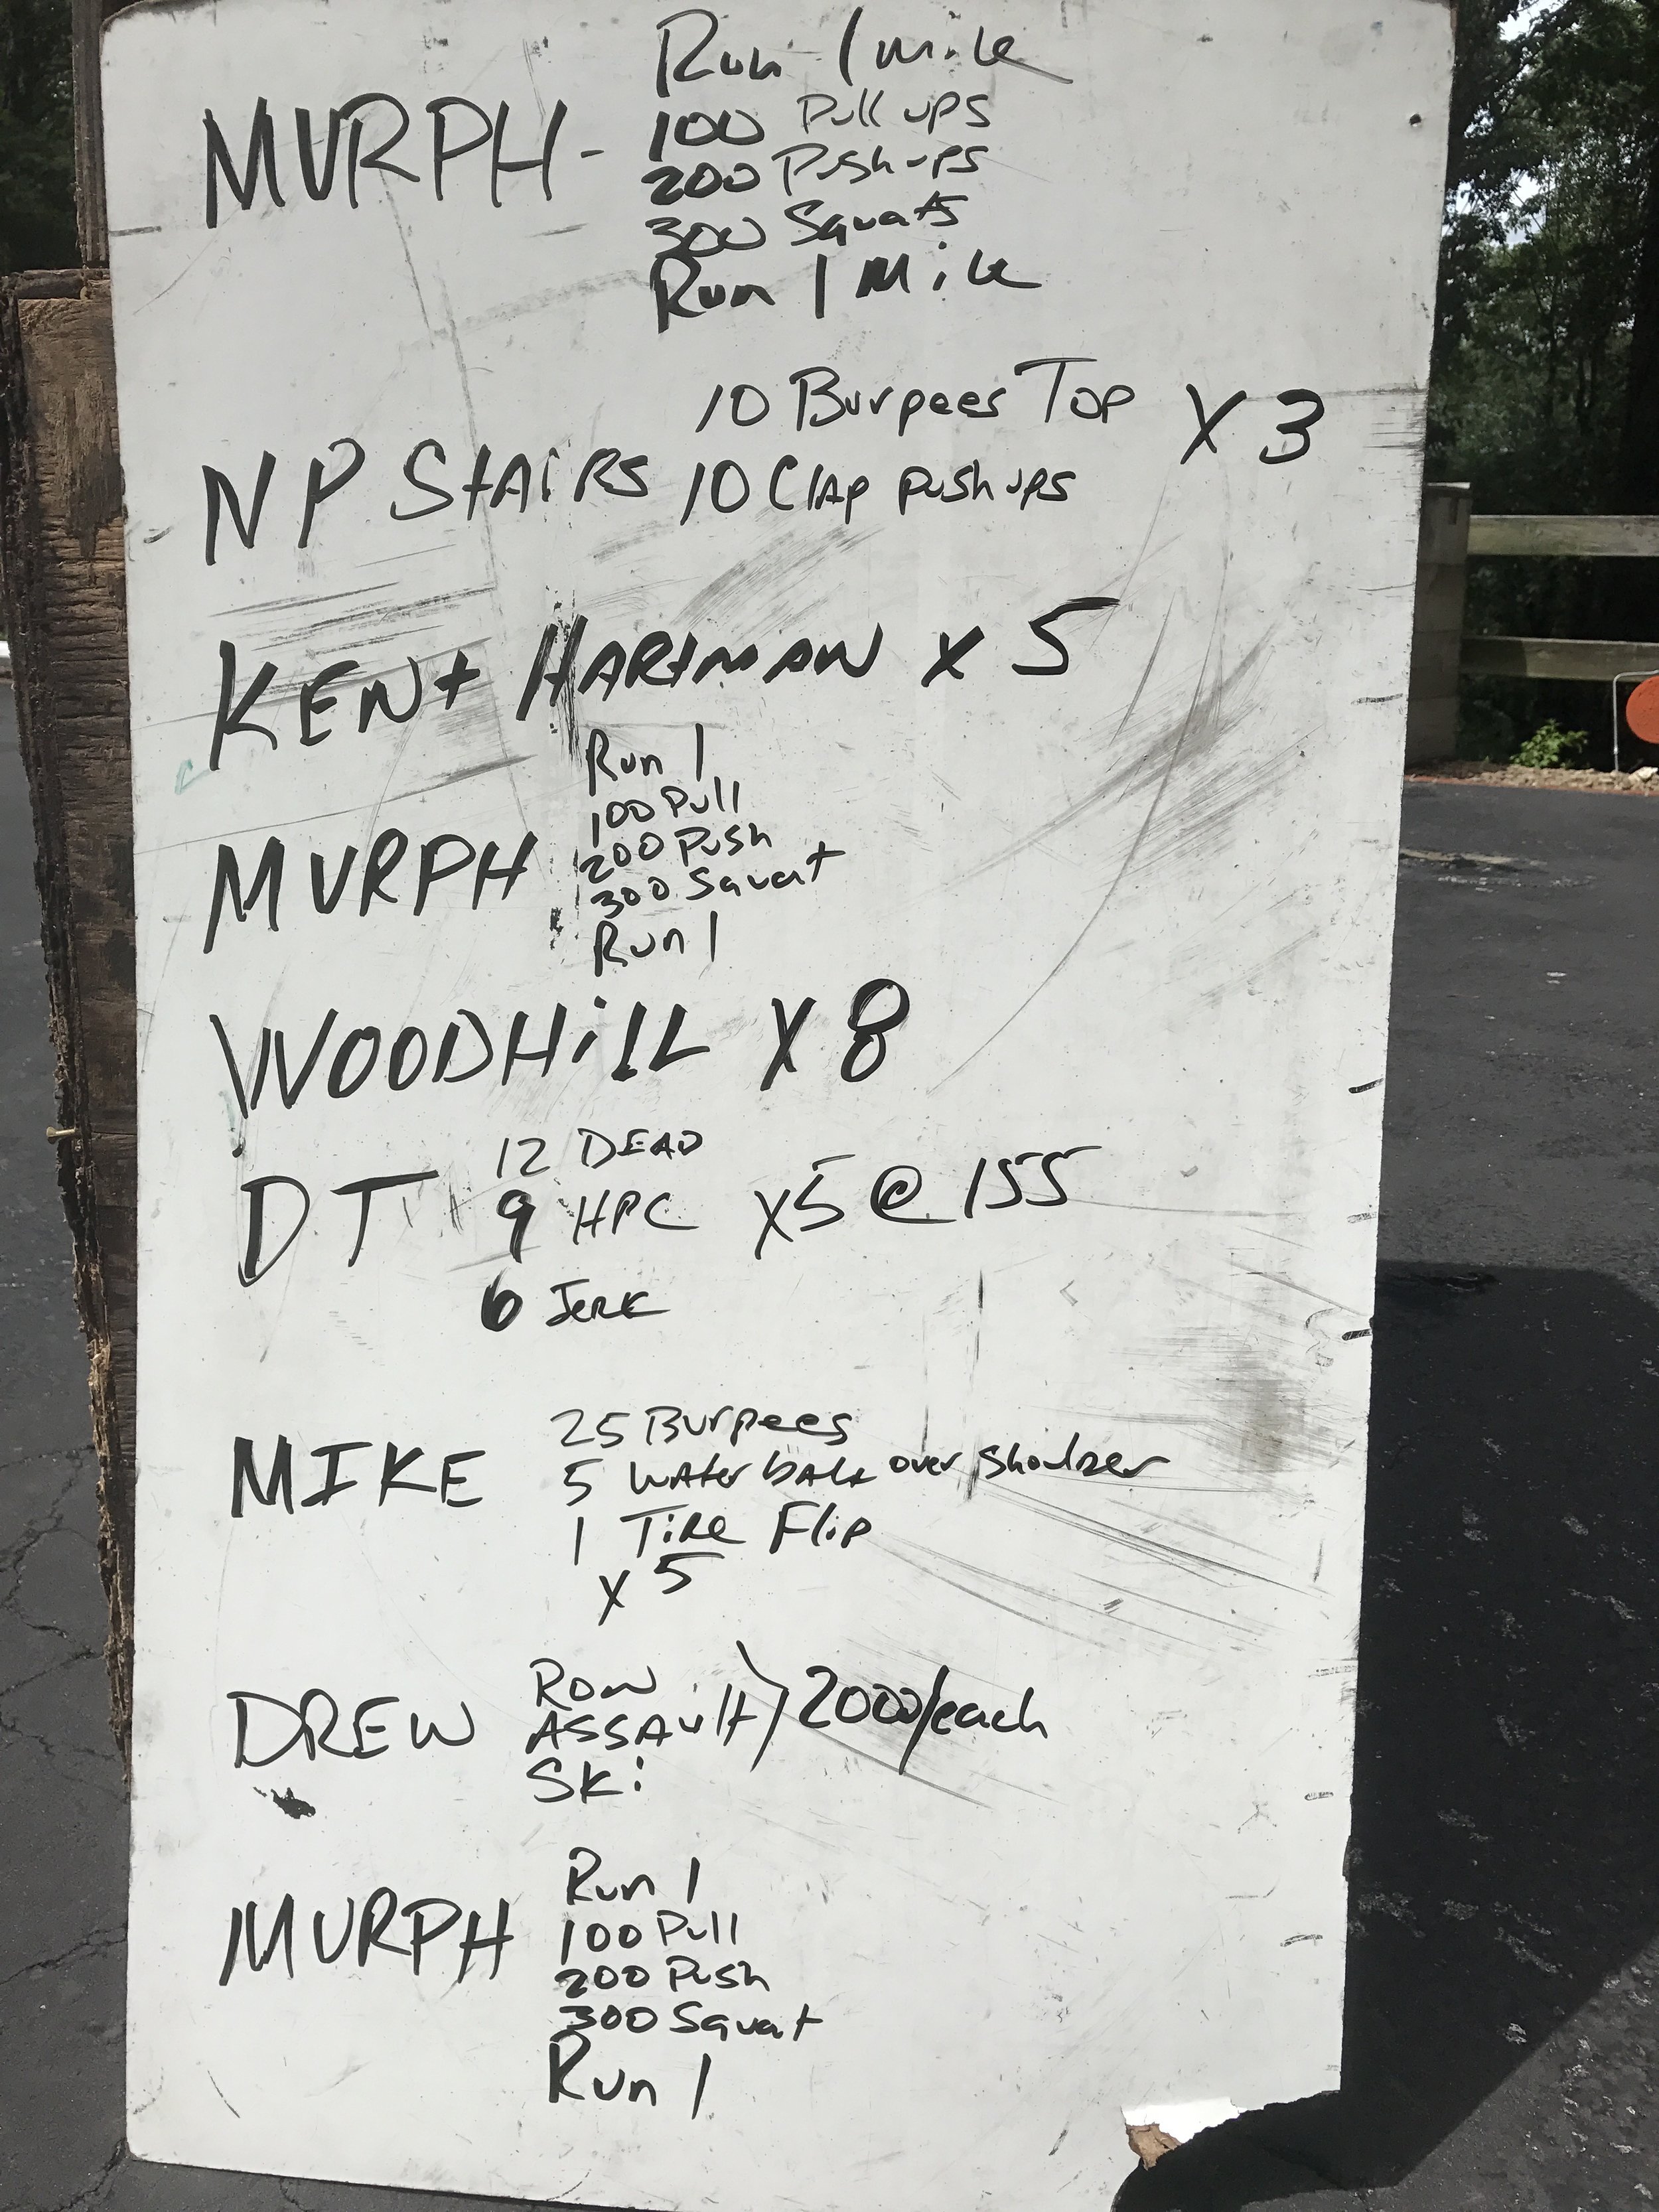 Run 1 mile
MURPH - 100 Pull ups
200 Push ups
300 Squats
Run 1 Mile
10 Burpees Top X 3
NP StAiRS 10 Clap push ups
KENt HARtMAN x 5
Run 1
100 Pull
MURPH 200 Push
300 Squat
Run 1
WOODHiLL X 8
12 DEAD
DT 9 HPC x5 @ 155
6 Jerk
25 Burpees
MIKE 5 Water ball over shoulder
1 Tire Flip
x 5
Row
DREW ASSAult 2000/each
Ski
Run 1
MURPH 100 Pull
200 Push
300 Squat
Run 1